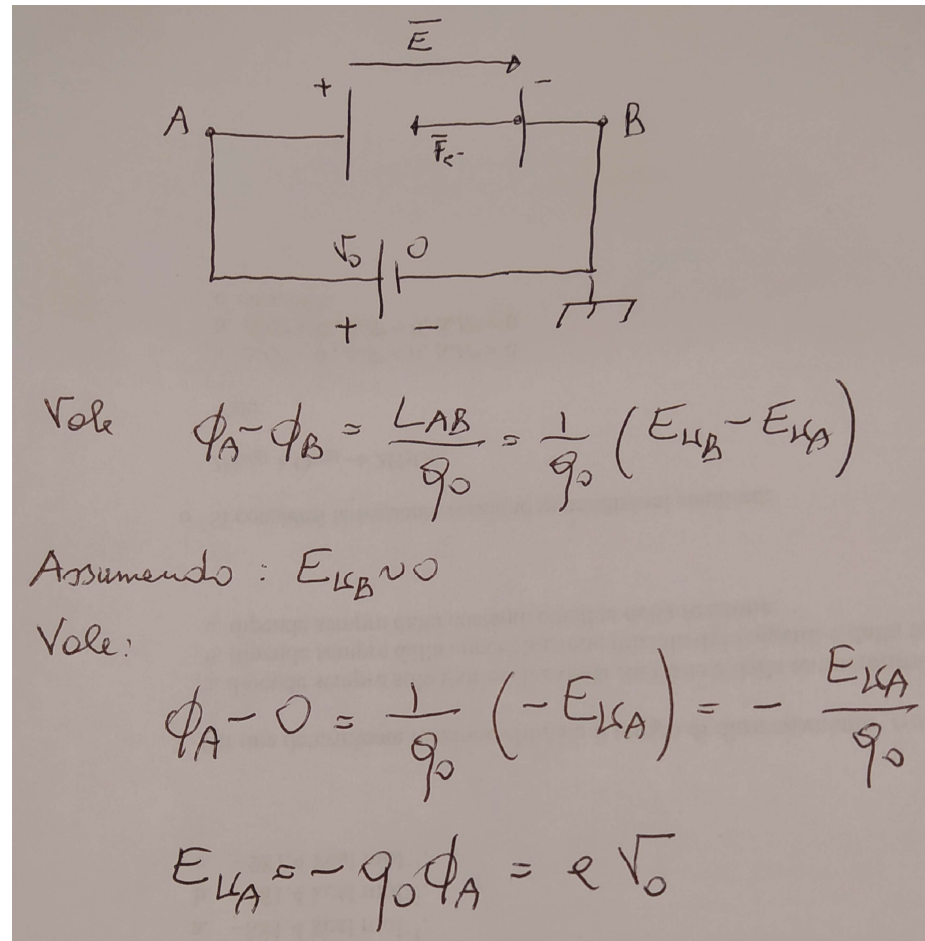 E̅
+ -
A B
F̅e-
V₀ 0
+ -
Vale ϕ_A - ϕ_B = L_AB / q₀ = 1 / q₀ (E_KB - E_KA)
Assumendo : E_KB ~ 0
Vale:
ϕ_A - 0 = 1 / q₀ (- E_KA) = - E_KA / q₀
E_KA = - q₀ ϕ_A = e V₀